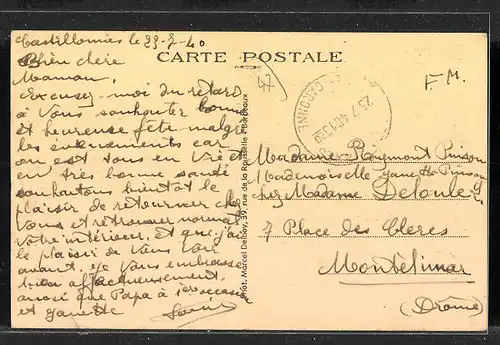 Castillonnès le 23-7-40
CARTE POSTALE
Bien chère
Maman,
Excusez-moi du retard
à vous souhaiter bonne
et heureuse fête malgré
les évènements car
on est tous en vie et
en très bonne santé
souhaitons bientôt le
plaisir de retourner chez
vous et retrouver
votre intérieur et que j'ai
le plaisir de vous voir
avant. Je vous embrasse
bien affectueusement
ainsi que Papa à 1ère occasion
et Ginette
Phot. Marcel Delboy, 39, rue de la Rousselle - Bordeaux
F.M.
GARONNE
23-7 40
Madame Raymont
Mademoiselle
chez Madame Deloule
7 Place des Clercs
Montélimar
(Drôme)